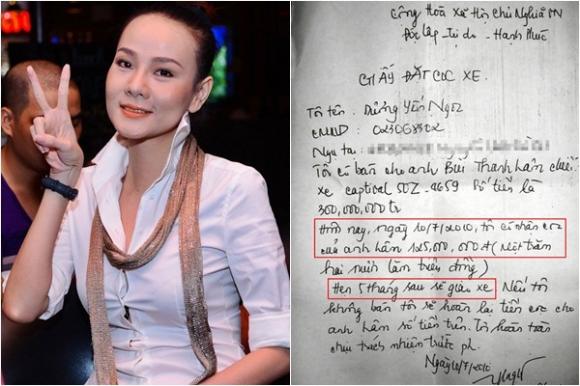 Cộng Hoà Xã Hội Chủ Nghĩa VN
Độc lập Tự do - Hạnh Phúc
GIẤY ĐẶT CỌC XE.
Tôi tên : Dương Yến Ngọc
CMND :
Ngụ tại :
Tôi có bán cho anh Bùi Thanh Hân chiếc
xe captival 50Z-4659 số tiền là
360,000,000 tr
Hôm nay, ngày 10/7/2010, tôi có nhận cọc
của anh Hân 125,000,000 đ (Một trăm
hai mươi lăm triệu đồng)
Hẹn 5 tháng sau sẽ giao xe Nếu tôi
không bán tôi sẽ hoàn lại tiền cọc cho
anh Hân số tiền trên. Tôi hoàn toàn
chịu trách nhiệm trước pl.
Ngày 10/7/2010